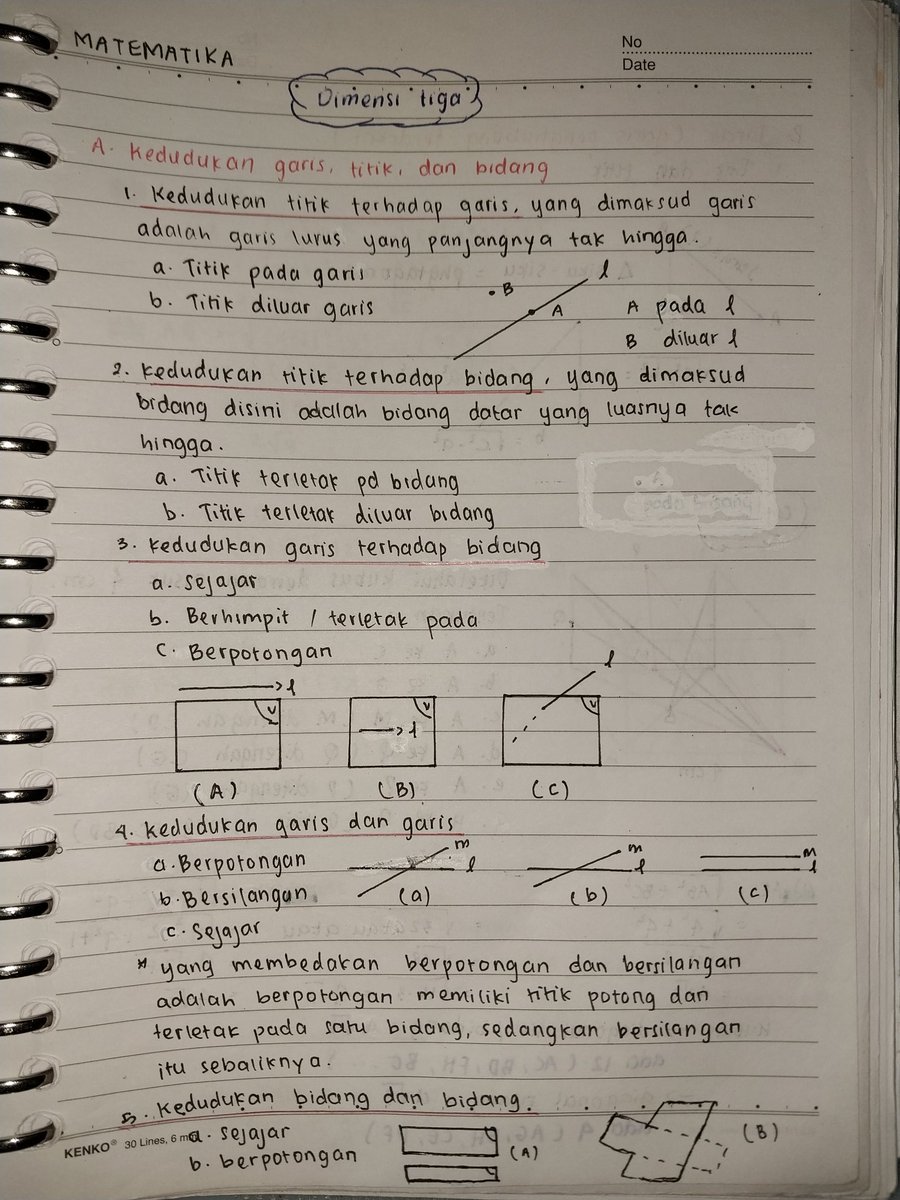 MATEMATIKA
No
Date
Dimensi tiga
A. Kedudukan garis, titik, dan bidang
1. Kedudukan titik terhadap garis, yang dimaksud garis
adalah garis lurus yang panjangnya tak hingga.
a. Titik pada garis
b. Titik diluar garis
B
A
l
A pada l
B diluar l
2. Kedudukan titik terhadap bidang, yang dimaksud
bidang disini adalah bidang datar yang luasnya tak
hingga.
a. Titik terletak pd bidang
b. Titik terletak diluar bidang
3. Kedudukan garis terhadap bidang
a. Sejajar
b. Berhimpit / terletak pada
c. Berpotongan
l
V
(A)
l
V
(B)
l
V
(C)
4. Kedudukan garis dan garis
a. Berpotongan
b. Bersilangan
c. Sejajar
m
l
(a)
m
l
(b)
m
l
(c)
* yang membedakan berpotongan dan bersilangan
adalah berpotongan memiliki titik potong dan
terletak pada satu bidang, sedangkan bersilangan
itu sebaliknya.
5. Kedudukan bidang dan bidang.
a. Sejajar
b. berpotongan
(A)
(B)
KENKO® 30 Lines, 6 m